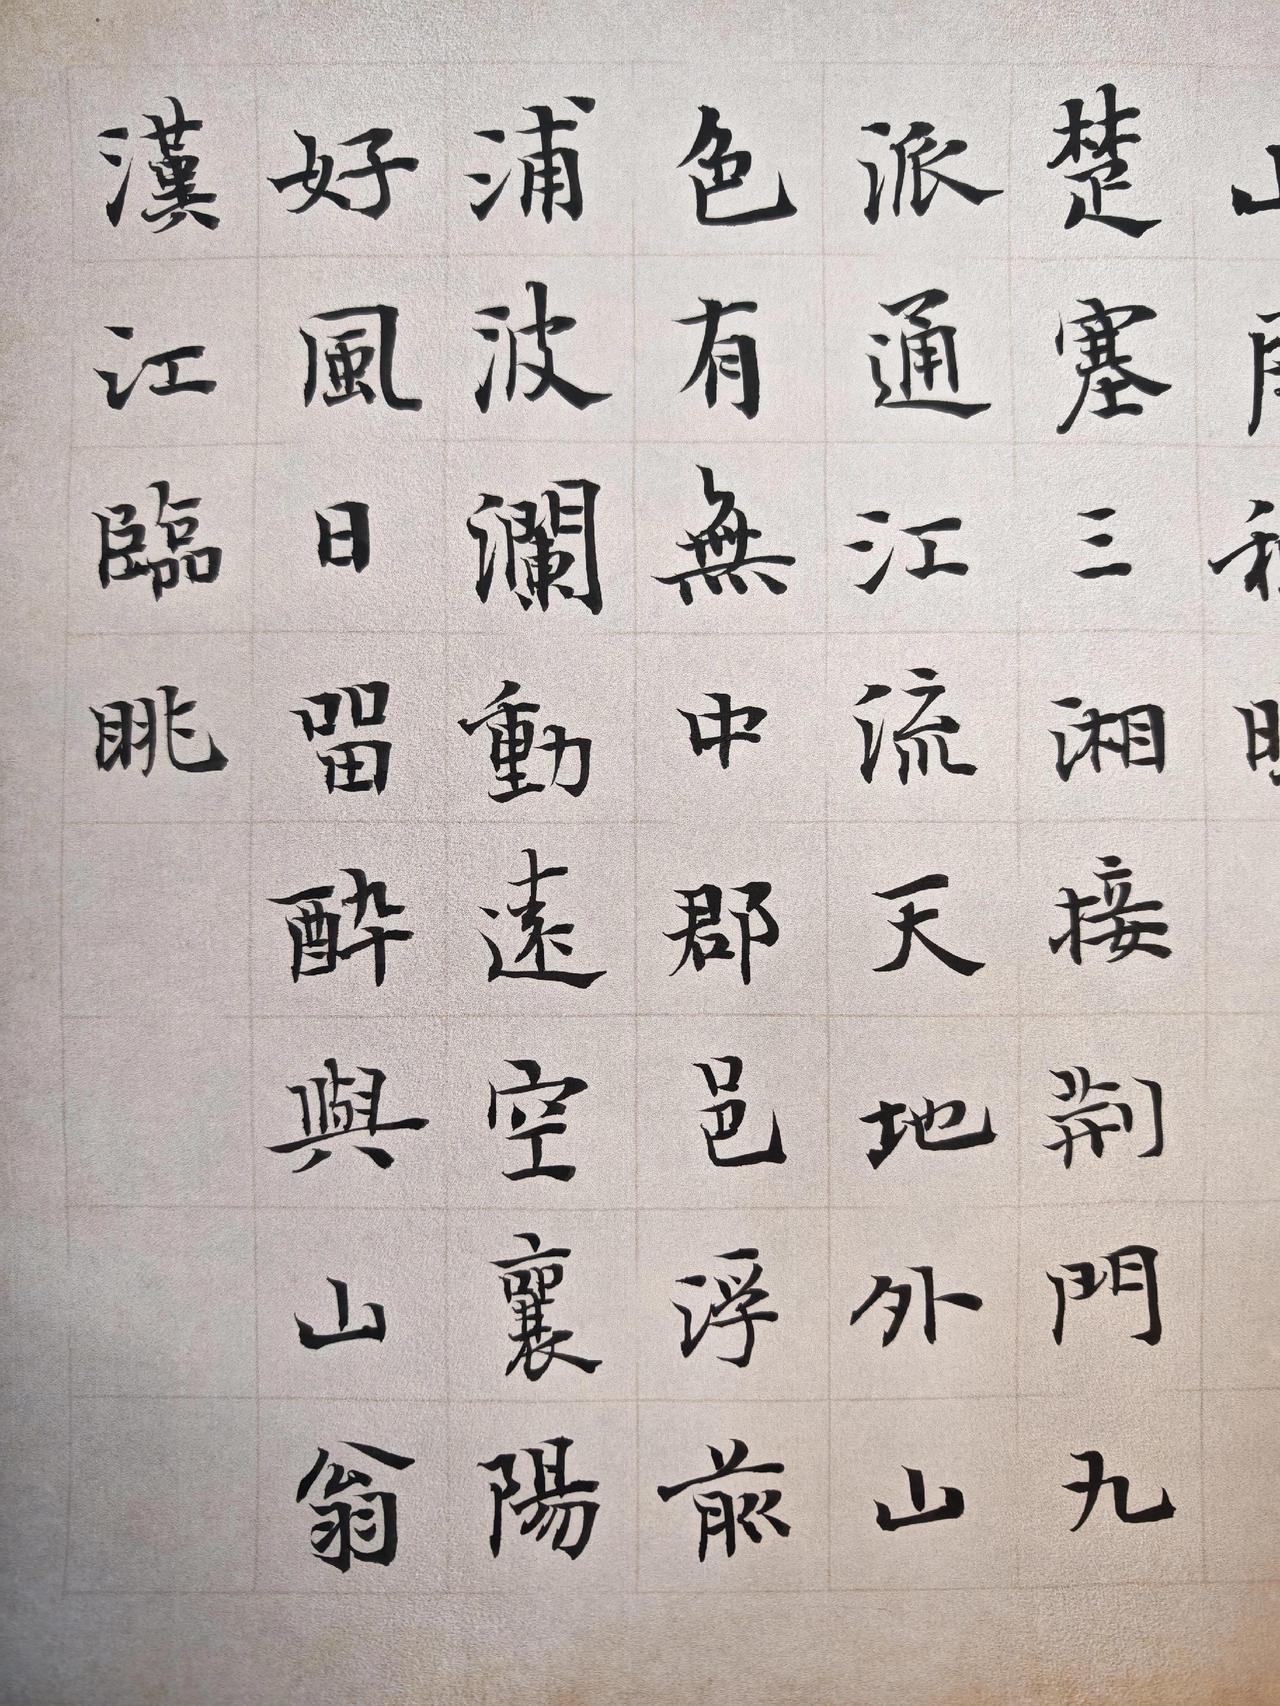 楚塞三湘接荆門九
派通江流天地外山
色有無中郡邑浮前
浦波瀾動遠空襄陽
好風日留醉與山翁
漢江臨眺